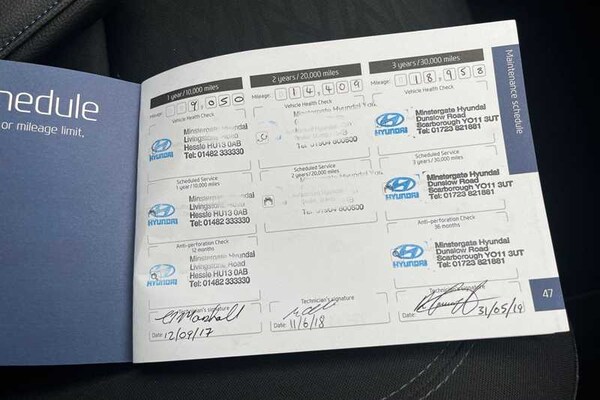 hedule
or mileage limit,
1 year/10,000 miles
Mileage: 9,050
Vehicle Health Check
Minstergate Hyundai
Livingstone Road
Hessle HU13 0AB
Tel: 01482 333330
HYUNDAI
Scheduled Service
1 year/10,000 miles
Minstergate Hyundai
Livingstone Road
Hessle HU13 0AB
Tel: 01482 333330
HYUNDAI
Anti-perforation Check
12 months
Minstergate Hyundai
Livingstone Road
Hessle HU13 0AB
Tel: 01482 333330
HYUNDAI
Technician's signature
Date: 12/09/17
2 years/20,000 miles
Mileage: 14,409
Vehicle Health Check
Minstergate Hyundai
Scheduled Service
2 years/20,000 miles
Technician's signature
Date: 11/6/18
3 years/30,000 miles
Mileage: 018,958
Vehicle Health Check
Minstergate Hyundai
Dunslow Road
Scarborough YO11 3UT
Tel: 01723 821881
HYUNDAI
Scheduled Service
3 years/30,000 miles
Minstergate Hyundai
Dunslow Road
Scarborough YO11 3UT
Tel: 01723 821881
HYUNDAI
Anti-perforation Check
36 months
Minstergate Hyundai
Dunslow Road
Scarborough YO11 3UT
Tel: 01723 821881
HYUNDAI
Technician's signature
Date: 31/05/19
Maintenance schedule
47